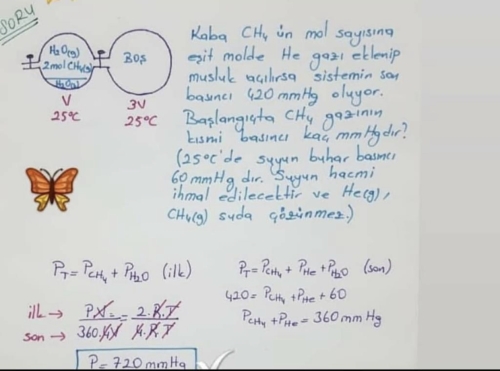 SORU
H₂O(g)
2mol CH₄(g)
H₂O(s)
V
25°C
BOŞ
3V
25°C
Kaba CH₄ ün mol sayısına
eşit molde He gazı eklenip
musluk açılırsa sistemin son
basıncı 420 mmHg oluyor.
Başlangıçta CH₄ gazının
kısmi basıncı kaç mmHgdır?
(25°C'de suyun buhar basıncı
60 mmHg dır. Suyun hacmi
ihmal edilecektir ve He(g),
CH₄(g) suda çözünmez.)
P_T = P_CH₄ + P_H₂O (ilk)
ilk → P.V = 2.R.T
son → 360.4V 4.R.T
P = 720 mmHg
P_T = P_CH₄ + P_He + P_H₂O (son)
420 = P_CH₄ + P_He + 60
P_CH₄ + P_He = 360 mm Hg